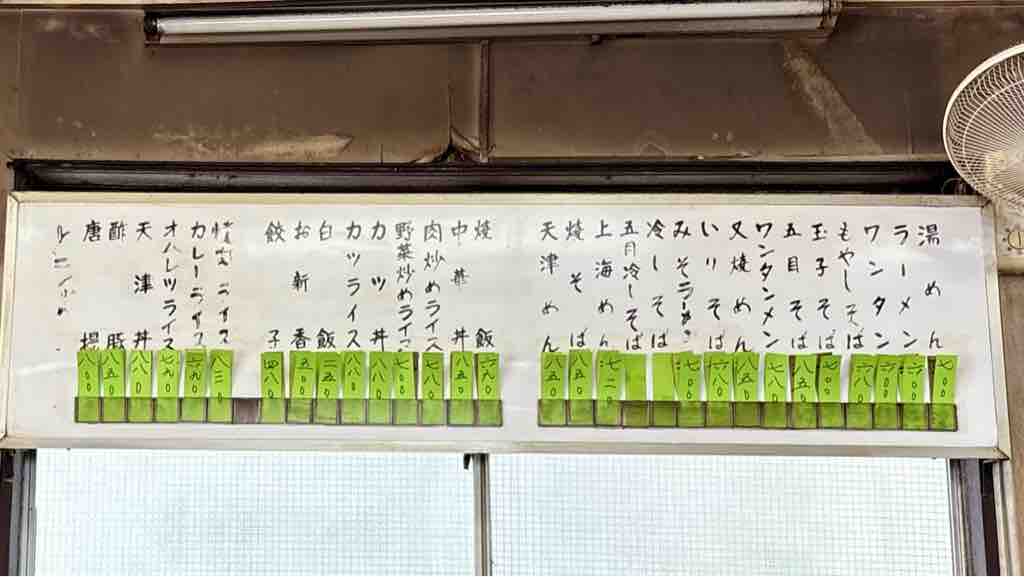 湯めん 七〇〇
ラーメン 六〇〇
ワンタン 六〇〇
もやしそば 六八〇
玉子そば 七〇〇
五目そば 八五〇
ワンタンメン 七八〇
叉焼めん 八五〇
いりそば 六八〇
みそラーメン 七〇〇
冷しそば
五目冷しそば
上海めん 七二〇
焼そば 八五〇
天津めん 八五〇
焼飯 六八〇
中華丼 八五〇
肉炒めライス 七八〇
野菜炒めライス 七〇〇
カツ丼 八八〇
カツライス 八八〇
白飯 二五〇
お新香 五〇〇
餃子 四八〇
ライス 八三〇
カレーライス
オムレツライス
天津丼 八八〇
酢豚 八五〇
唐揚 八〇〇